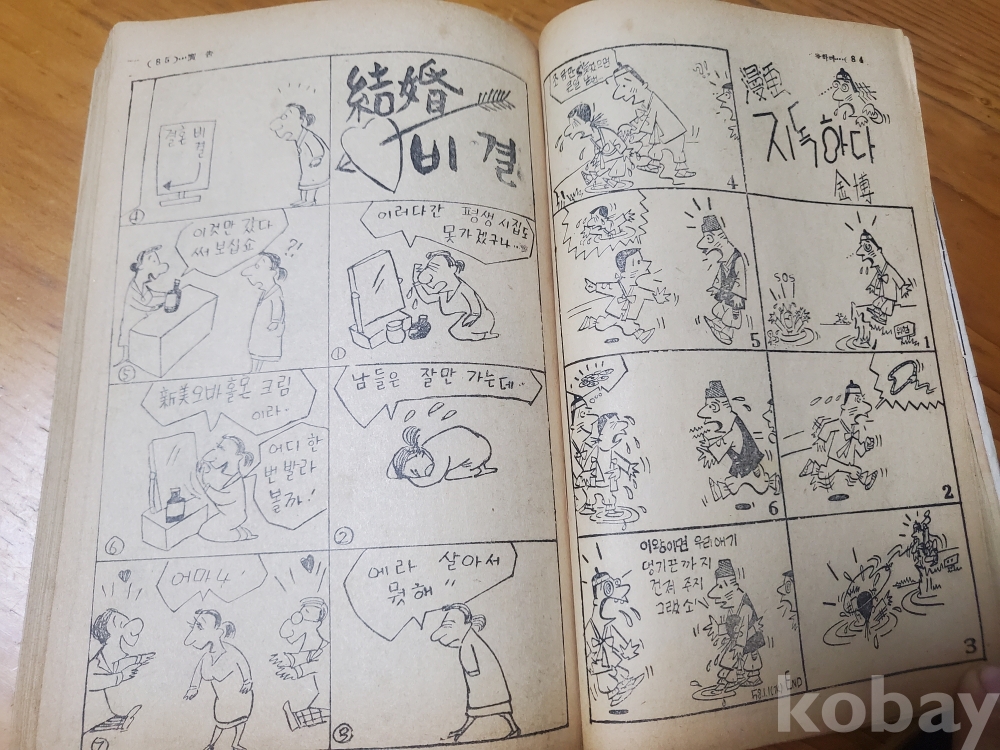 84
漫画
지독하다
金博
SOS
1
2
3
4
5
6
이왕이면 우리애기
댕기끈까지
건져 주지
그랬소
END
(85)…廣告
結婚
비결
이러다간 평생 시집도
못가겠구나…
①
남들은 잘만 가는데‥
②
에라 살아서
뭣해
③
결혼 비결
④
이것만 갔다
써 보십쇼
?!
⑤
新美오바홀몬 크림
이라‥
어디 한
번 발라
볼까!
⑥
어마나
⑦
kobay